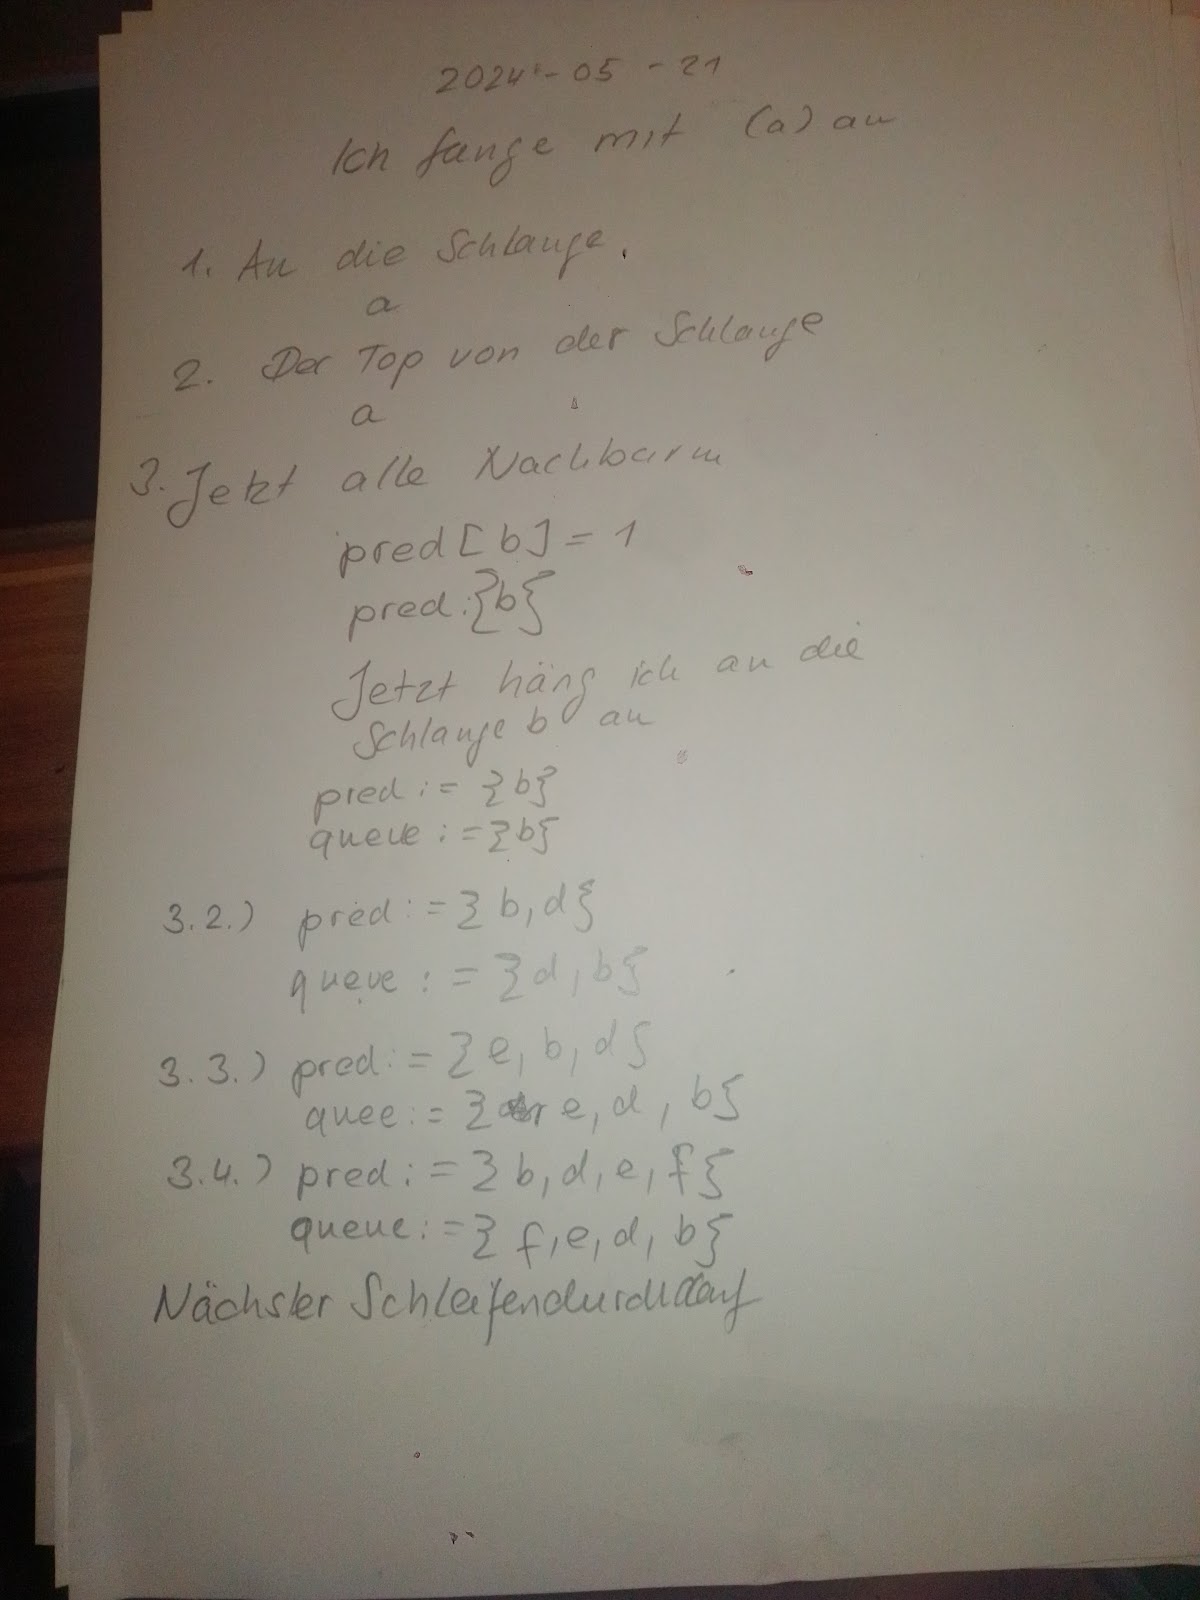 2024-05-21
Ich fange mit (a) an
1. An die Schlange.
a
2. Der Top von der Schlange
a
3. Jetzt alle Nachbarn
pred[b] = 1
pred:{b}
Jetzt häng ich an die
Schlange b an
pred := {b}
queue := {b}
3.2.) pred := {b, d}
queue := {d, b}
3.3.) pred := {e, b, d}
quee := { e, d, b}
3.4.) pred := {b, d, e, f}
queue := { f, e, d, b}
Nächster Schleifendurchlauf